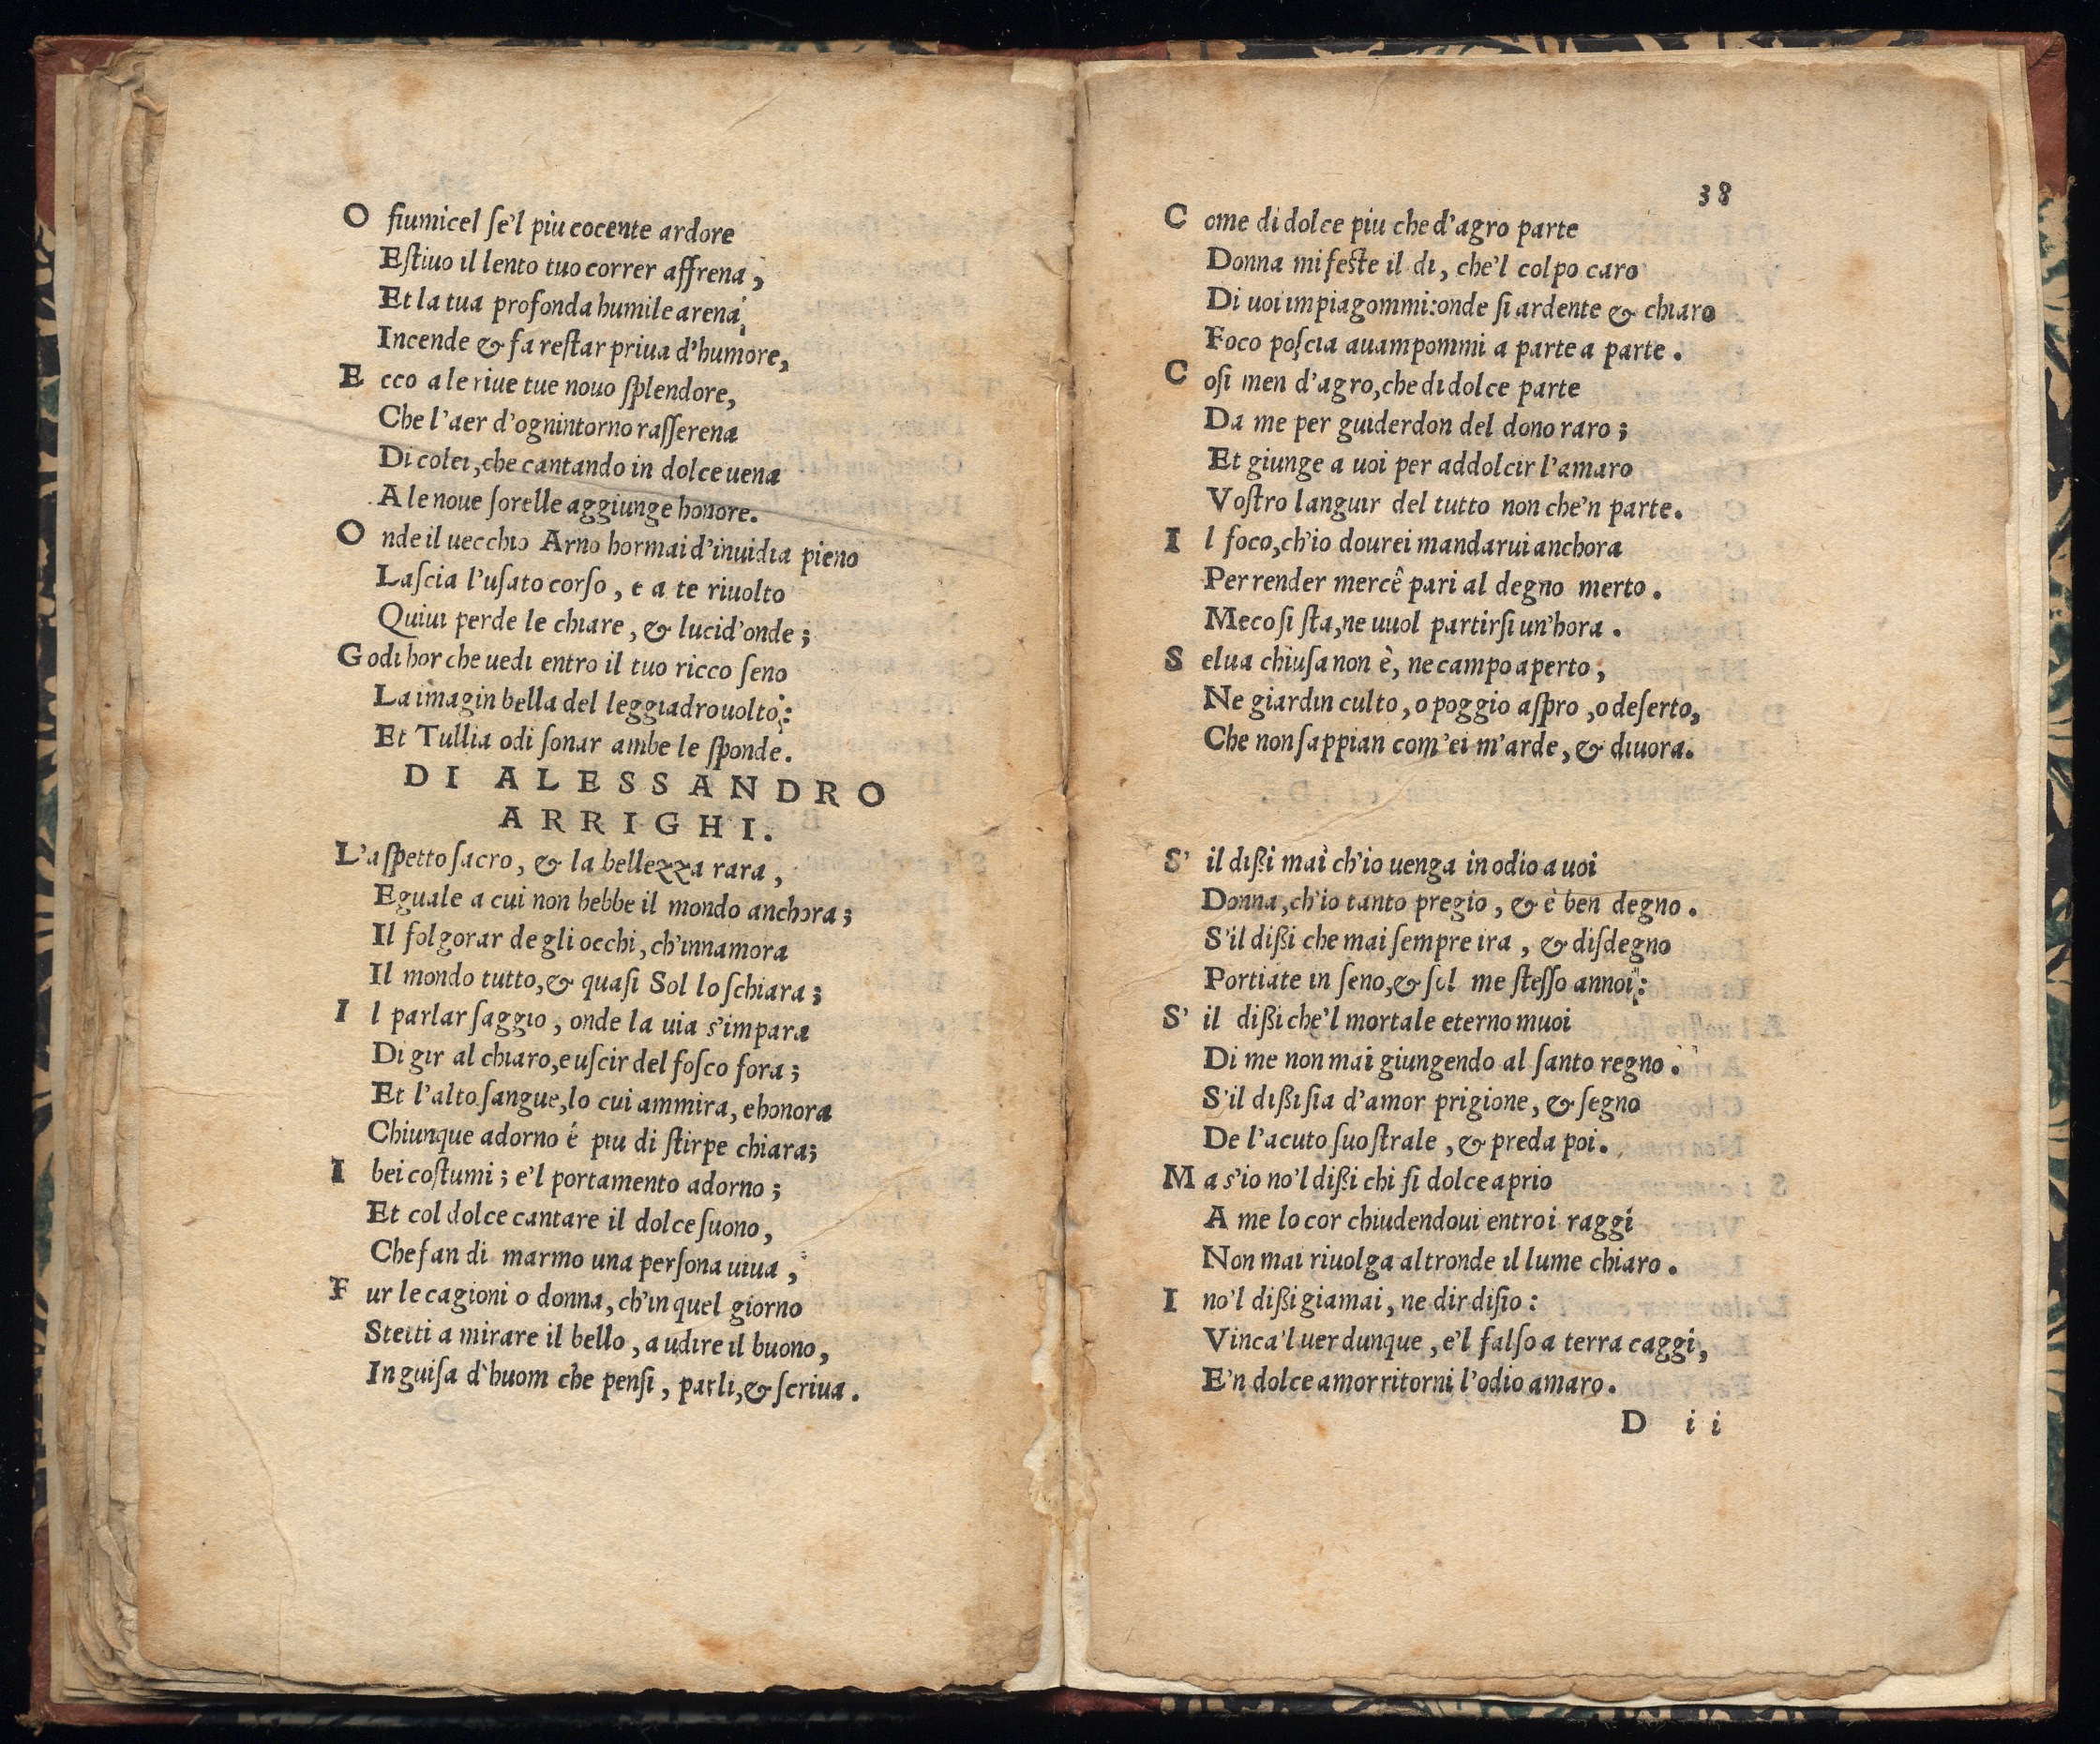 O fiumicel ſe'l piu cocente ardore
Eſtiuo il lento tuo correr affrena,
Et la tua profonda humile arena,
Incende & fa reſtar priua d'humore,
E cco a le riue tue nouo ſplendore,
Che l'aer d'ognintorno raſſerena
Di colei, che cantando in dolce uena
A le noue ſorelle aggiunge honore.
O nde il uecchio Arno hormai d'inuidia pieno
Laſcia l'uſato corſo, e a te riuolto
Quiui perde le chiare, & lucid'onde;
G odi hor che uedi entro il tuo ricco ſeno
La imagin bella del leggiadro uolto:
Et Tullia odi ſonar ambe le ſponde.
DI ALESSANDRO
ARRIGHI.
L'aſpetto ſacro, & la bellezza rara,
Eguale a cui non hebbe il mondo anchora;
Il folgorar de gli occhi, ch'innamora
Il mondo tutto, & quaſi Sol lo ſchiara;
I l parlar ſaggio, onde la uia s'impara
Di gir al chiaro, e uſcir del foſco fora;
Et l'alto ſangue, lo cui ammira, e honora
Chiunque adorno é piu di ſtirpe chiara;
I bei coſtumi; e'l portamento adorno;
Et col dolce cantare il dolce ſuono,
Che fan di marmo una perſona uiua,
F ur le cagioni o donna, ch'in quel giorno
Stetti a mirare il bello, a udire il buono,
In guiſa d'huom che penſi, parli, & ſcriua.
38
C ome di dolce piu che d'agro parte
Donna mi feſte il di, che'l colpo caro
Di uoi impiagommi: onde ſi ardente & chiaro
Foco poſcia auampommi a parte a parte.
C oſi men d'agro, che di dolce parte
Da me per guiderdon del dono raro;
Et giunge a uoi per addolcir l'amaro
Voſtro languir del tutto non che'n parte.
I l foco, ch'io dourei mandarui anchora
Per render mercê pari al degno merto.
Meco ſi ſta, ne uuol partirſi un'hora.
S elua chiuſa non è, ne campo aperto,
Ne giardin culto, o poggio aſpro, o deſerto,
Che non ſappian com'ei m'arde, & diuora.
S' il dißi mai ch'io uenga in odio a uoi
Donna, ch'io tanto pregio, & è ben degno.
S'il dißi che mai ſempre ira, & diſdegno
Portiate in ſeno, & ſol me ſteſſo annoi:
S' il dißi che'l mortale eterno muoi
Di me non mai giungendo al ſanto regno.
S'il dißi ſia d'amor prigione, & ſegno
De l'acuto ſuo ſtrale, & preda poi.
M a s'io no'l dißi chi ſi dolce aprio
A me lo cor chiudendoui entro i raggi
Non mai riuolga altronde il lume chiaro.
I no'l dißi giamai, ne dir diſio:
Vinca'l uer dunque, e'l falſo a terra caggi,
E'n dolce amor ritorni l'odio amaro.
D ii